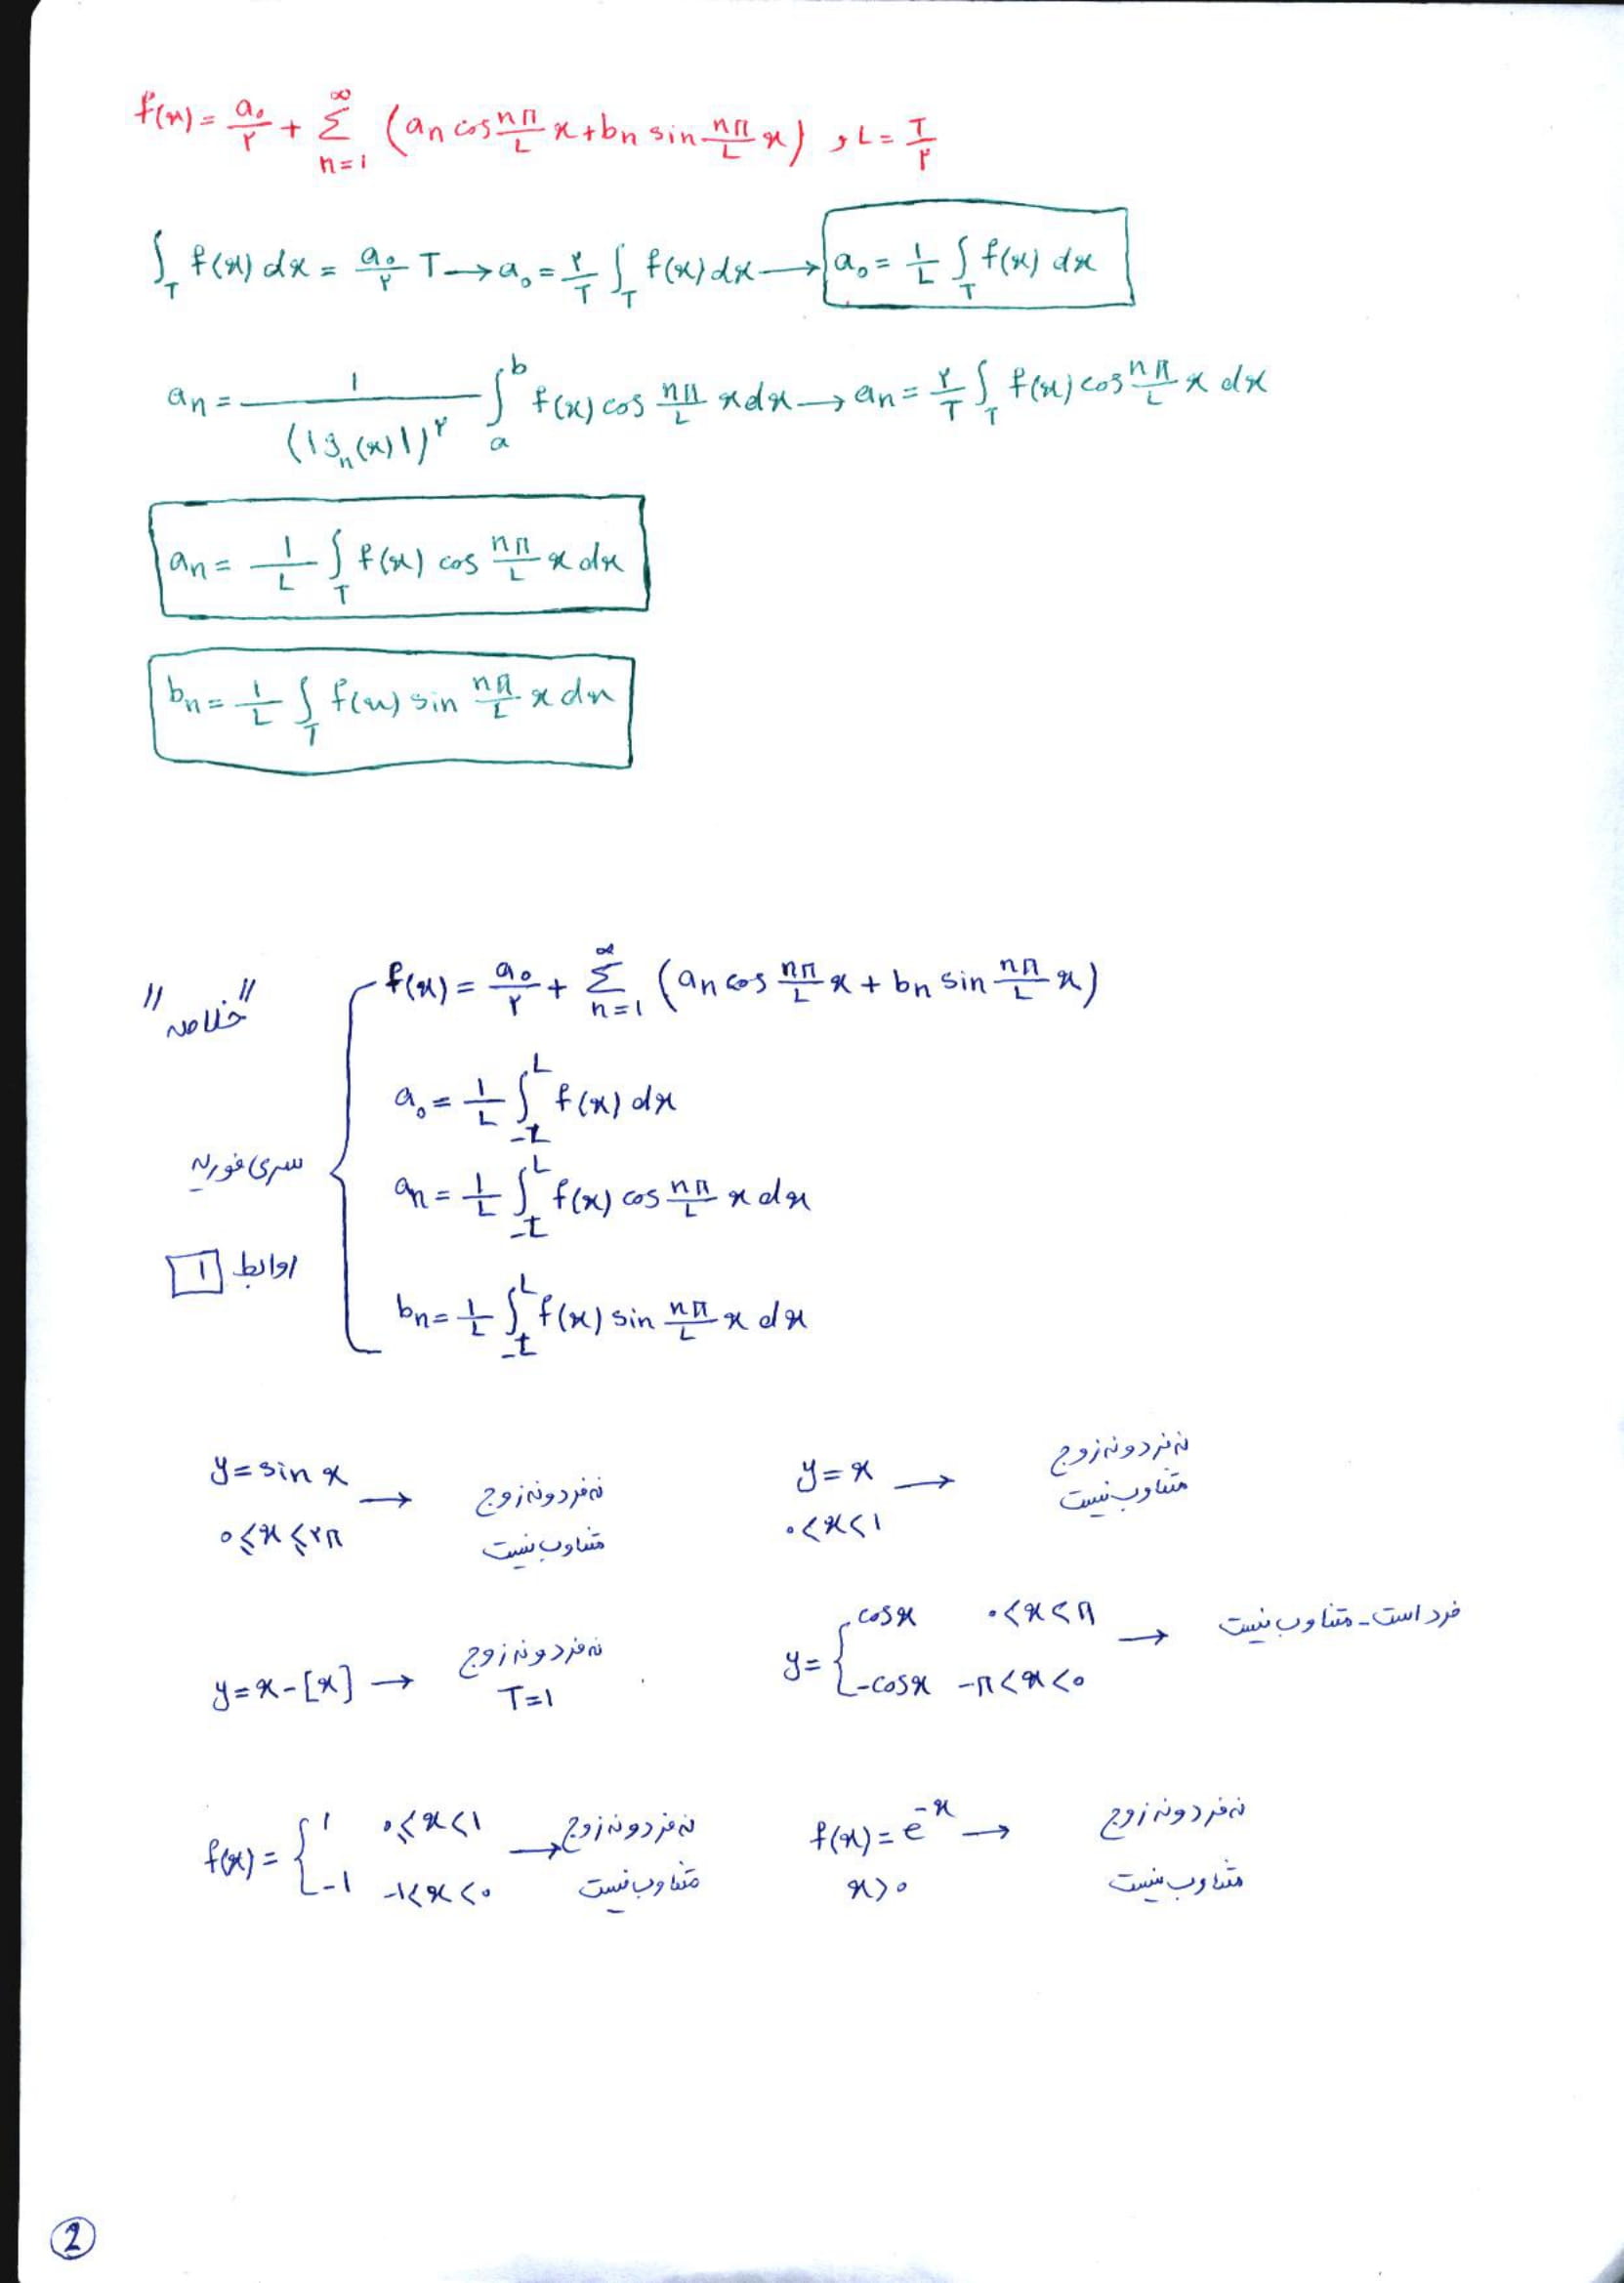 f(x) = a₀/۲ + Σ_{n=1}^{∞} (aₙ cos nπ/L x + bₙ sin nπ/L x) , L = T/۲
∫_T f(x) dx = a₀/۲ T → a₀ = ۲/T ∫_T f(x) dx → a₀ = 1/L ∫_T f(x) dx
aₙ = 1/(|gₙ(x)|)^۲ ∫_a^b f(x) cos nπ/L x dx → aₙ = ۲/T ∫_T f(x) cos nπ/L x dx
aₙ = 1/L ∫_T f(x) cos nπ/L x dx
bₙ = 1/L ∫_T f(x) sin nπ/L x dx
"خلاصه"
f(x) = a₀/۲ + Σ_{n=1}^{∞} (aₙ cos nπ/L x + bₙ sin nπ/L x)
a₀ = 1/L ∫_{-L}^{L} f(x) dx
سری فوریه
aₙ = 1/L ∫_{-L}^{L} f(x) cos nπ/L x dx
روابط ۱
bₙ = 1/L ∫_{-L}^{L} f(x) sin nπ/L x dx
y = sin x → نه فرد و نه زوج
۰ ≤ x ≤ ۲π متناوب نیست
y = x → نه فرد و نه زوج
۰ < x < ۱ متناوب نیست
y = x - [x] → نه فرد و نه زوج
T = 1
y = { cos x ۰ < x < π → فرد است - متناوب نیست
-cos x -π < x < ۰
f(x) = { ۱ ۰ ≤ x < ۱ → نه فرد و نه زوج
-۱ -۱ < x < ۰ متناوب نیست
f(x) = e^{-x} → نه فرد و نه زوج
x > ۰ متناوب نیست
2